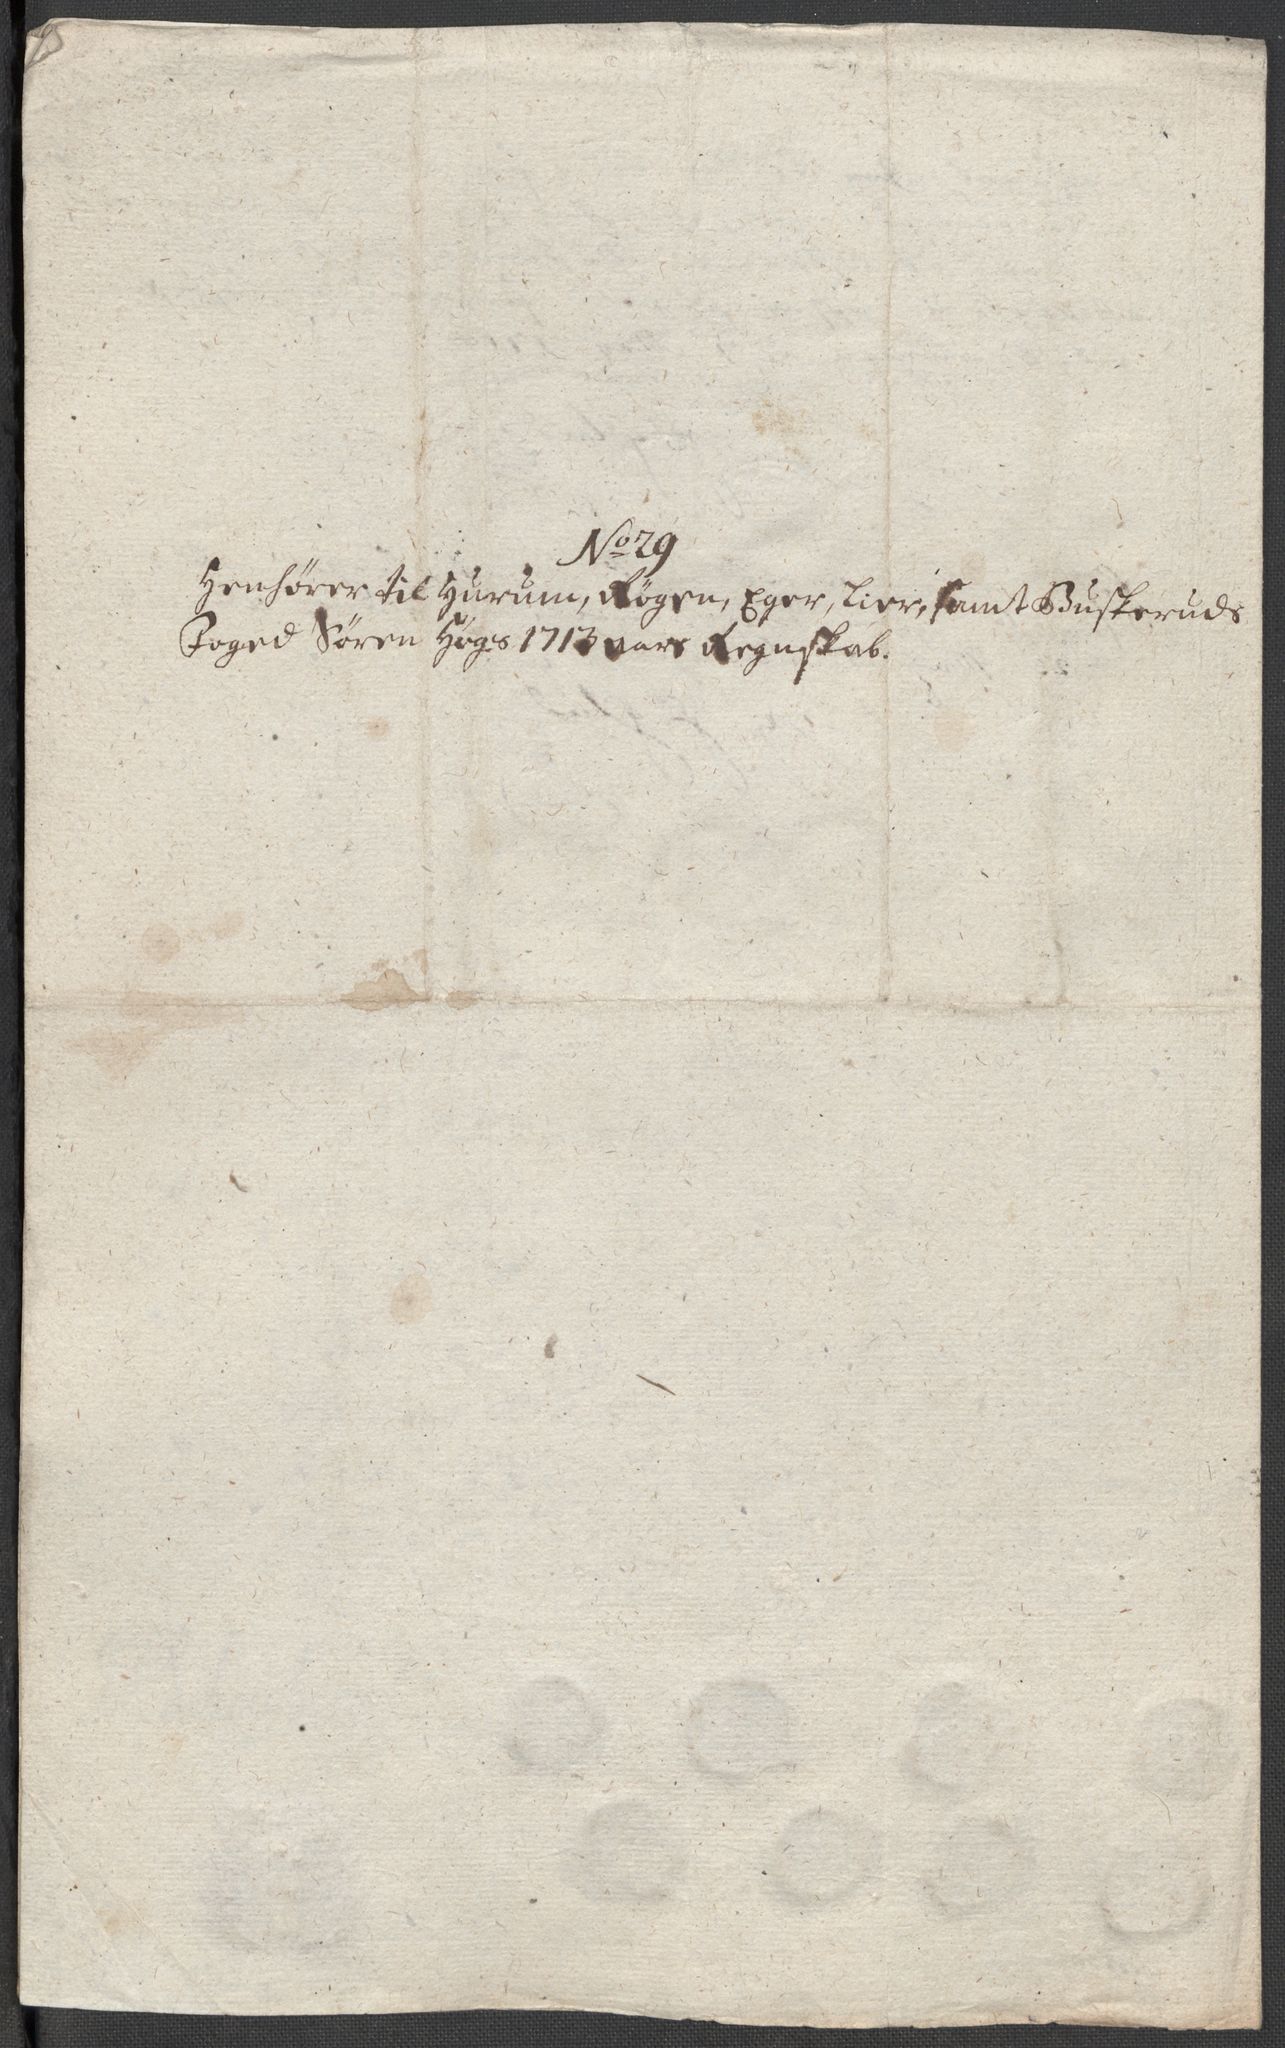 No 29
Henhörer til Hurum, Rögen, Eger, Lier, samt Buskeruds
Foged Sören Högs 1713 aars Regnskab.